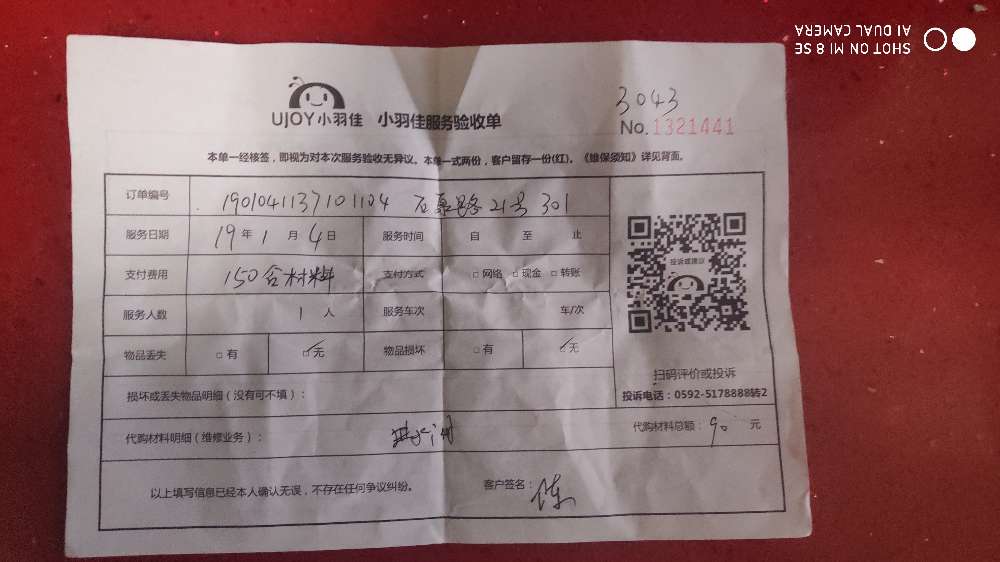 SHOT ON MI 8 SE
AI DUAL CAMERA
UJOY小羽佳 小羽佳服务验收单
3043
No.1321441
本单一经核签，即视为对本次服务验收无异议。本单一式两份，客户留存一份(红)。《维保须知》详见背面。
订单编号 1901041137101104 21号 301
服务日期 19年1月4日 服务时间 自 至 止
支付费用 150含材料 支付方式 □网络 □现金 □转账
服务人数 1人 服务车次 车/次
物品丢失 □有 ☑无 物品损坏 □有 ☑无
投诉或建议
扫码评价或投诉
投诉电话：0592-5178888转2
损坏或丢失物品明细（没有可不填）：
代购材料明细（维修业务）： 代购材料总额：90 元
以上填写信息已经本人确认无误，不存在任何争议纠纷。 客户签名：陈